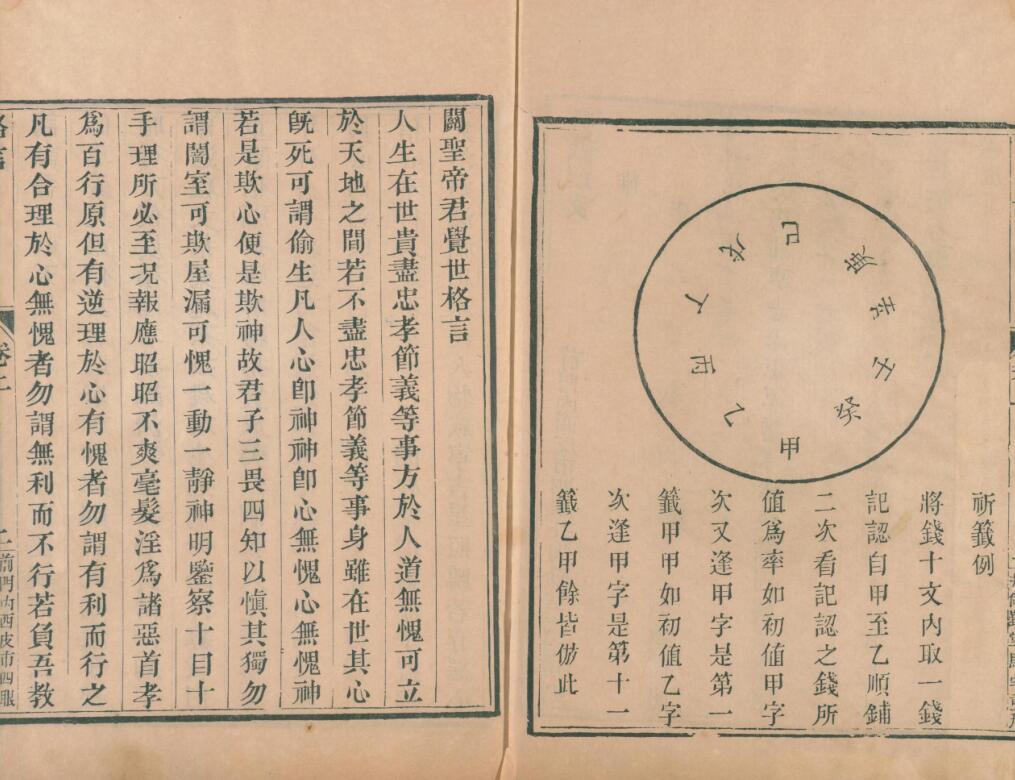 甲
乙
丙
丁
戊
己
庚
辛
壬
癸
祈籤例
將錢十文內取一錢
記認自甲至乙順鋪
二次看記認之錢所
值爲率如初值甲字
次又逢甲字是第一
籤甲甲如初值乙字
次逢甲字是第十一
籤乙甲餘皆倣此
關聖帝君覺世格言
人生在世貴盡忠孝節義等事方於人道無愧可立
於天地之間若不盡忠孝節義等事身雖在世其心
旣死可謂偷生凡人心卽神神卽心無愧心無愧神
若是欺心便是欺神故君子三畏四知以愼其獨勿
謂闇室可欺屋漏可愧一動一靜神明鑒察十目十
手理所必至况報應昭昭不爽毫髮淫爲諸惡首孝
爲百行原但有逆理於心有愧者勿謂有利而行之
凡有合理於心無愧者勿謂無利而不行若負吾教
格言
卷上
前門內西皮市四眼